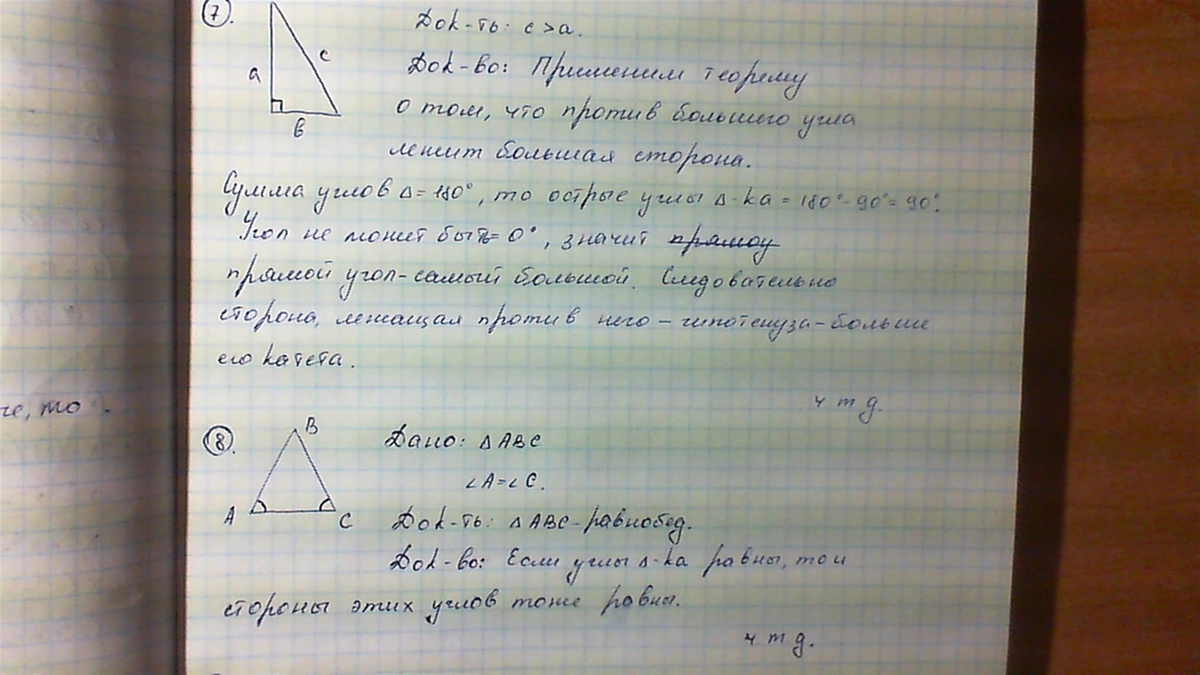 7.
Док-ть: c > a.
a
c
в
Док-во: Применим теорему
о том, что против большего угла
лежит большая сторона.
Сумма углов Δ = 180°, то острые углы Δ-ka = 180° - 90° = 90°.
Угол не может быть = 0°, значит прямоу
прямой угол - самый большой. Следовательно
сторона, лежащая против него - гипотенуза - больше
его катета.
ч т д.
че, то
8.
B
A
C
Дано: Δ ABC
∠A = ∠C.
Док-ть: Δ ABC - равнобед.
Док-во: Если углы Δ-ка равны, то и
стороны этих углов тоже равны.
ч. т д.